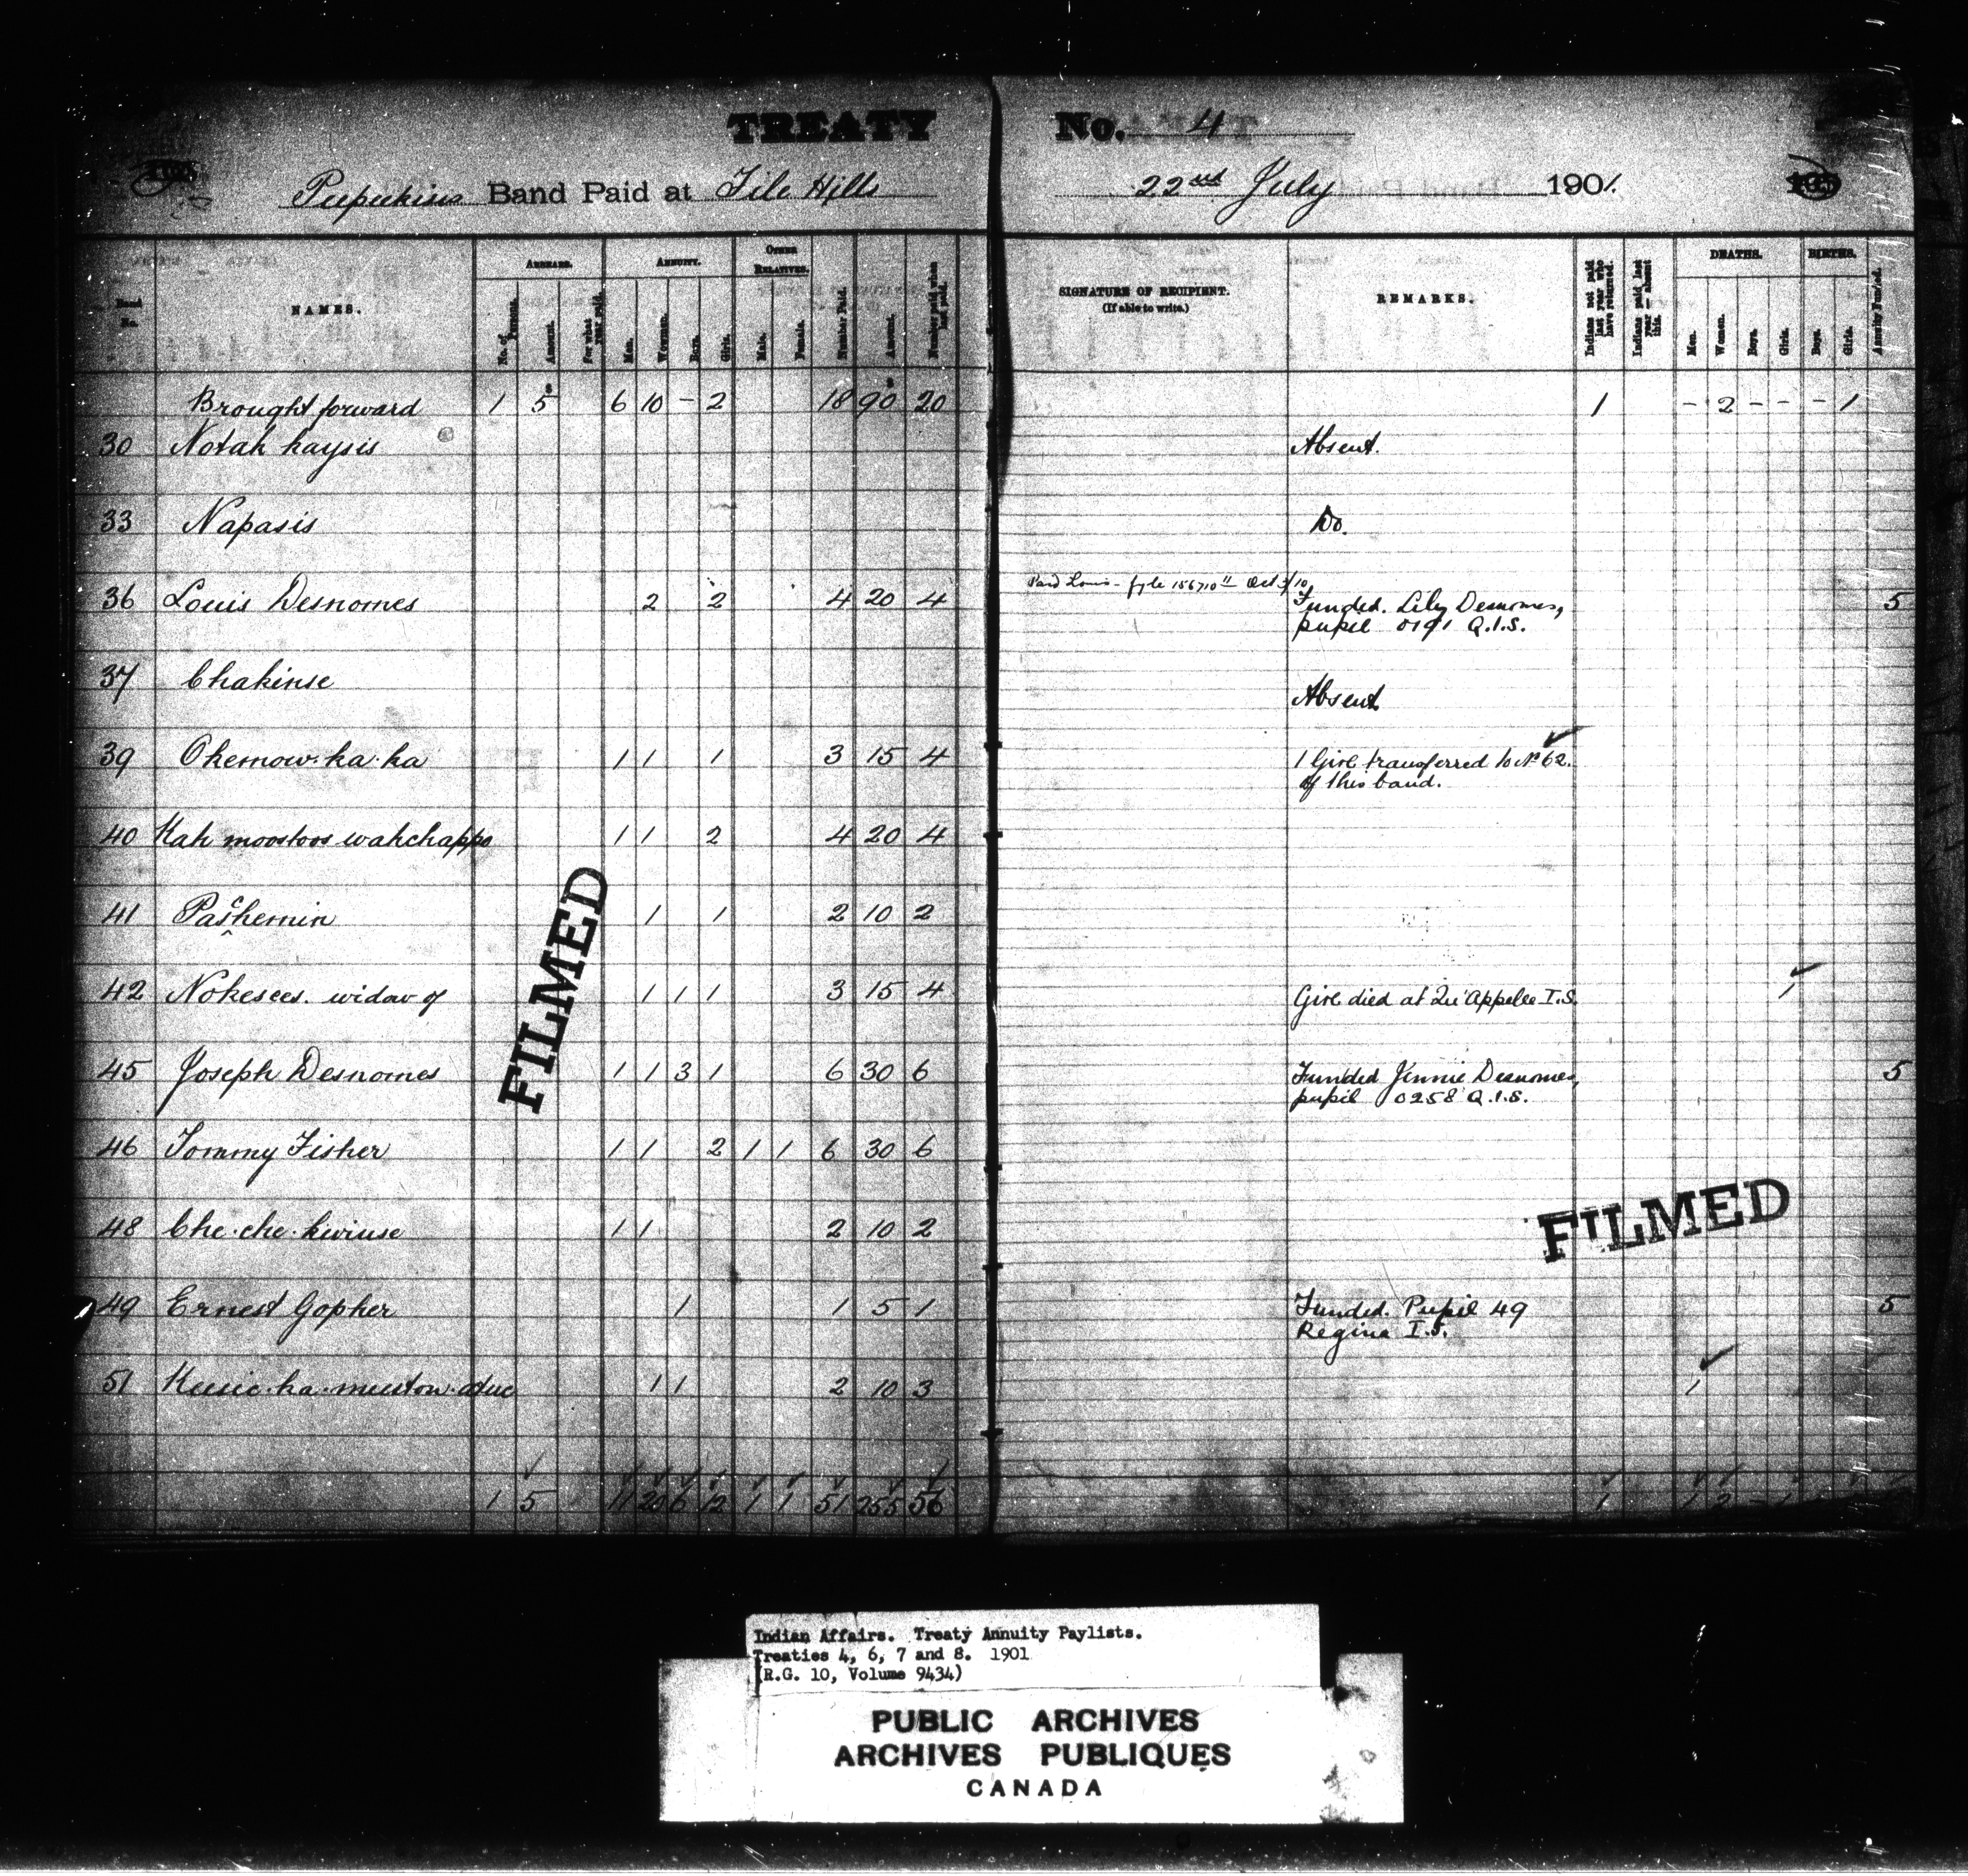 TREATY No. 4
Band Paid at File Hills 22nd July 1901.
Band No. NAMES. ARREARS. ANNUITY. OTHER RELATIVES. SIGNATURE OF RECIPIENT. REMARKS. DEATHS. BIRTHS.
(If able to write.)
No. of Persons. Amount. For what year paid. Men. Women. Boys. Girls. Male. Female. Number Paid. Amount. Number paid when last paid. Indians not paid last year who have returned. Indians paid last year — absent this. Men. Women. Boys. Girls. Boys. Girls. Annuity Funded.
Brought forward 1 5 6 10 - 2 18 90 20 1 - 2 - - - 1
30 Notah kaysis Absent.
33 Napasis Do.
36 Louis Desnomes 2 2 4 20 4 Paid Louis - fyle 156710 Oct 3/10 Funded. Lily Desnomes, 5
pupil 0191 Q.I.S.
37 Chakinse Absent
39 Okemow.ka.ka 1 1 1 3 15 4 1 Girl transferred to No 62.
of this band.
40 Kah moostoos wahchappo 1 1 2 4 20 4
41 Paschemin 1 1 2 10 2
42 Nokesees. widow of 1 1 1 3 15 4 Girl died at Qu'Appelle I.S. 1
45 Joseph Desnomes 1 1 3 1 6 30 6 Funded Jennie Desnomes, 5
pupil 0258 Q.I.S.
46 Tommy Fisher 1 1 2 1 1 6 30 6
48 Che.che.kwiuse 1 1 2 10 2
49 Ernest Gopher 1 1 5 1 Funded. Pupil 49 5
Regina I.S.
51 1 1 2 10 3 1
1 5 11 20 6 12 1 1 51 255 56 1 1 2 - 1
FILMED
FILMED
Indian Affairs. Treaty Annuity Paylists.
Treaties 4, 6, 7 and 8. 1901
(R.G. 10, Volume 9434)
PUBLIC ARCHIVES
ARCHIVES PUBLIQUES
CANADA